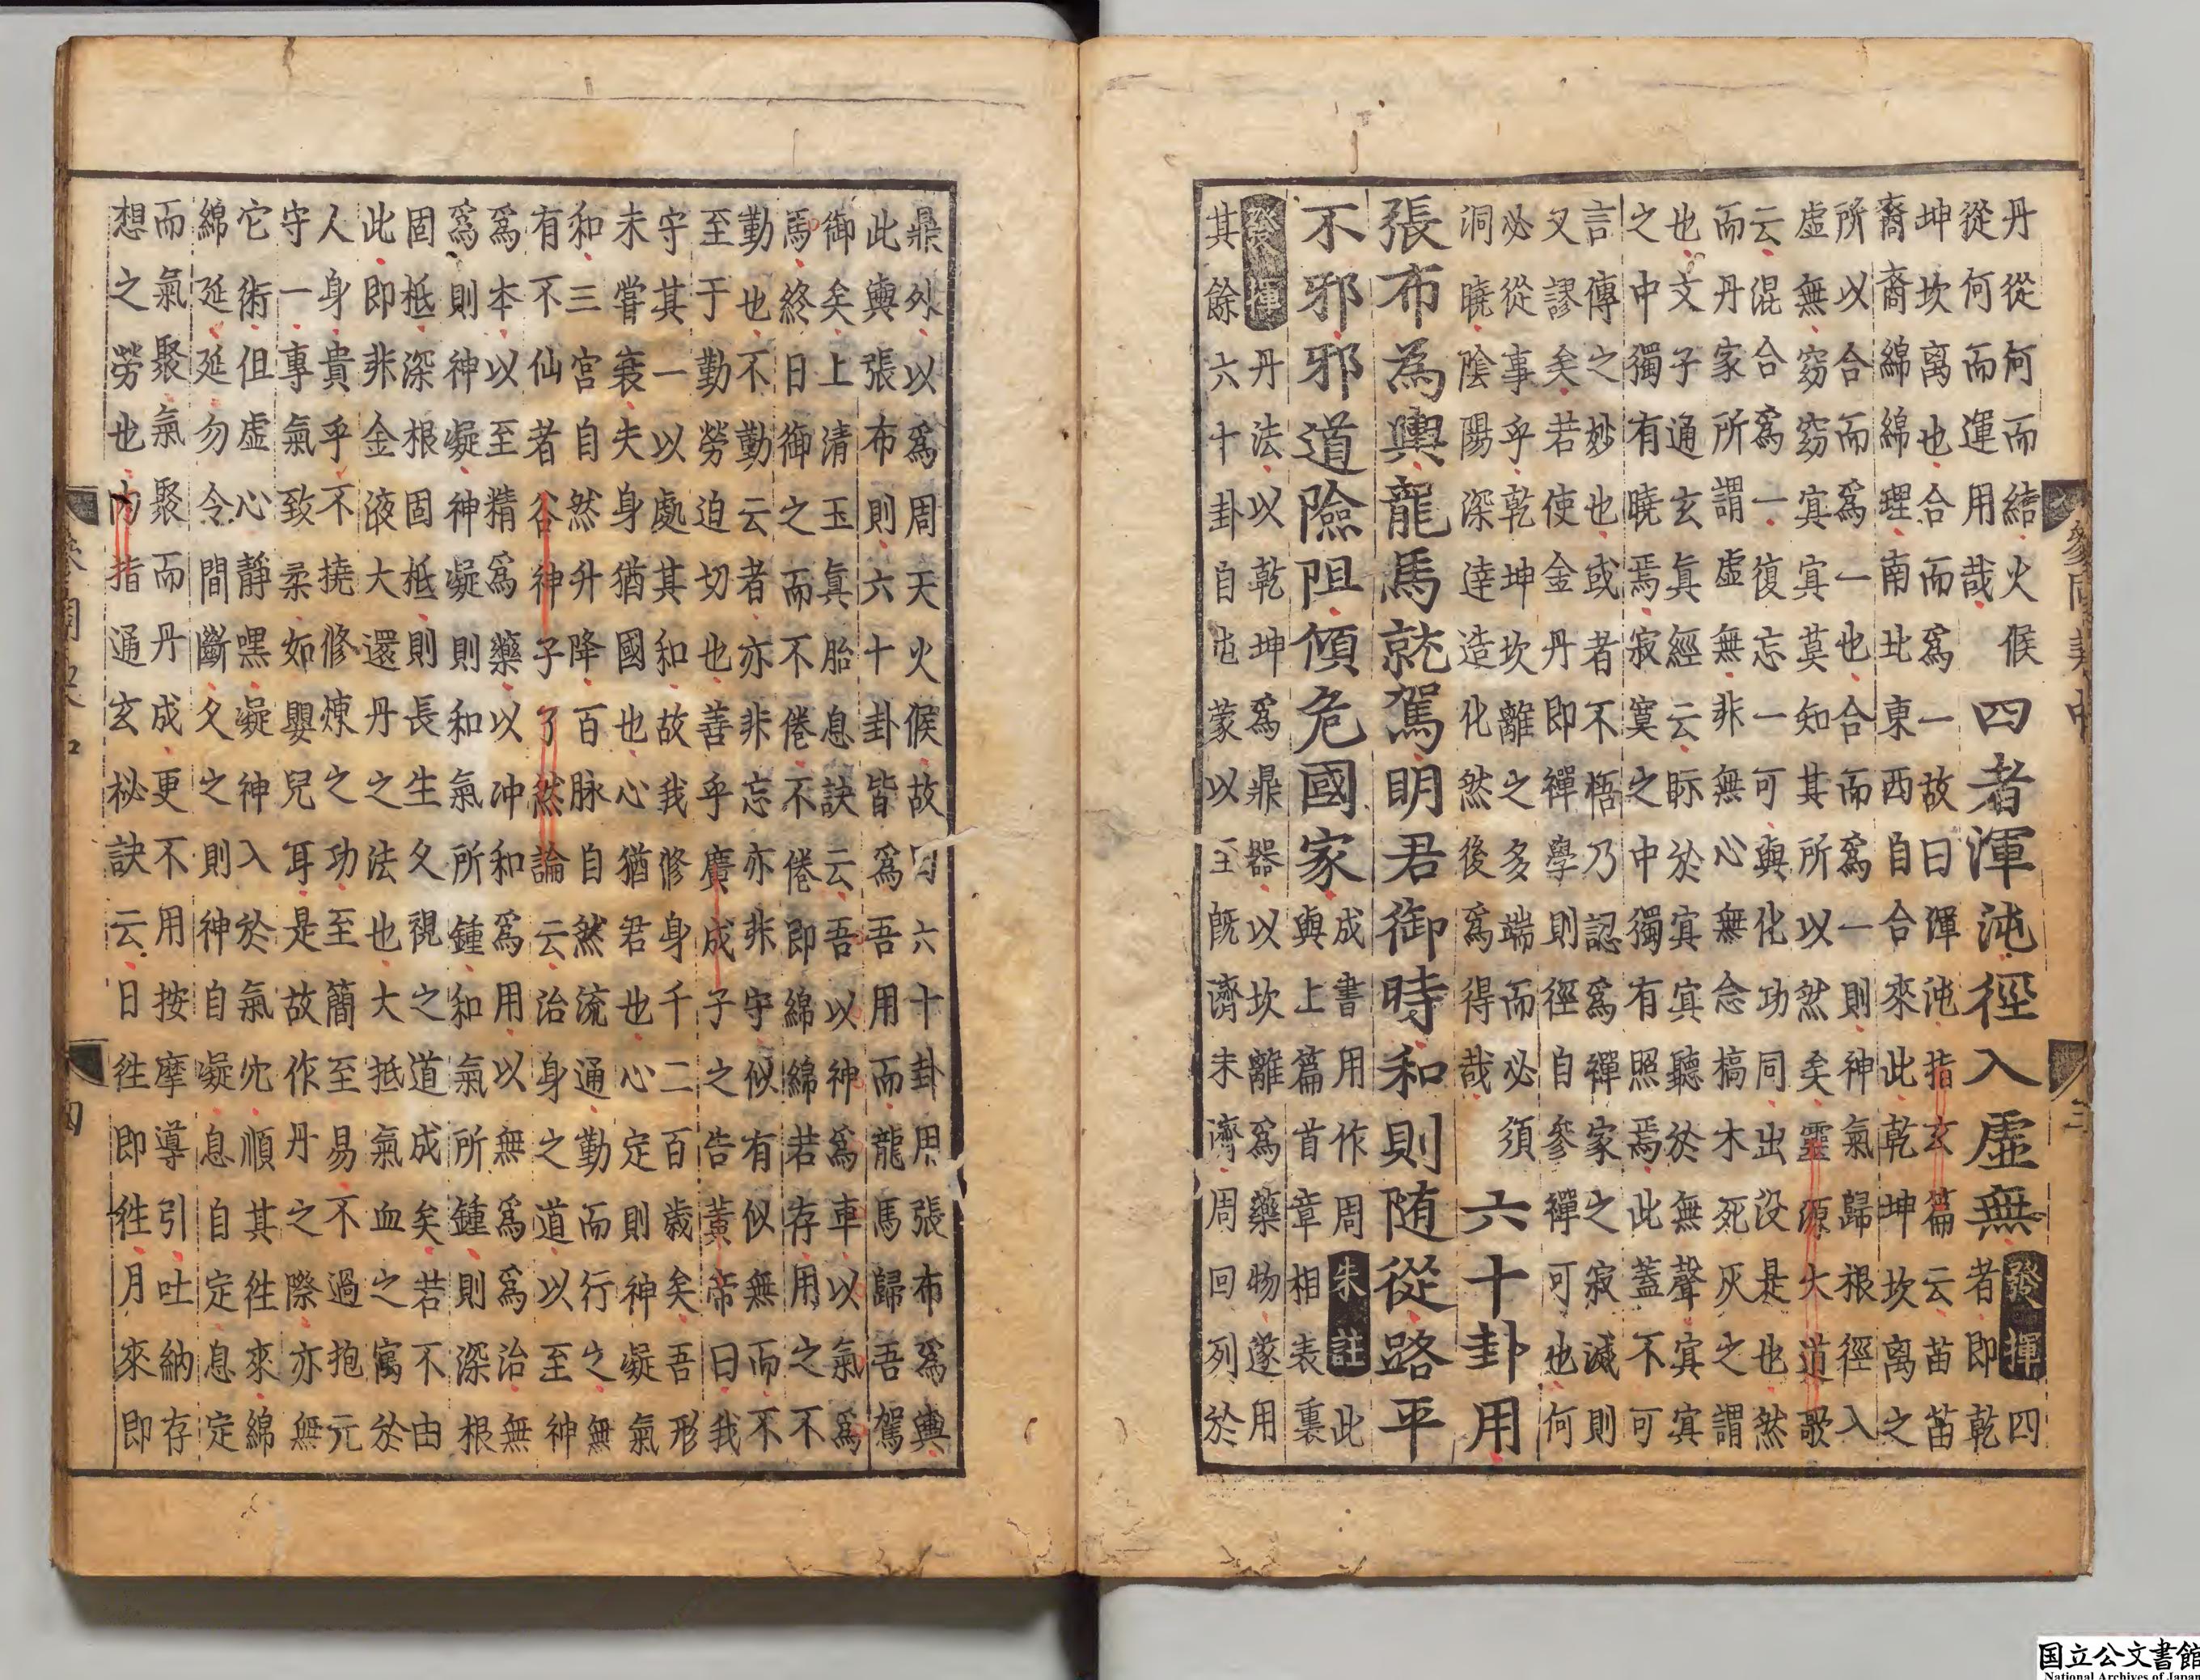 丹從何而結火候
從何而運用哉
四者渾沌徑入虛無
發揮 四
者即乾
坤坎离也合而爲一故曰渾沌指玄篇云苗苗
裔裔綿綿理南北東西自合來此乾坤坎离之
所以合而爲一也合而爲一則神氣歸根徑入
虛無窈窈冥冥莫知其所以然矣靈源大道歌
云混合爲一復忘一可與化功同出没是也然
而丹家所謂虛無非無心無念槁木死灰之謂
也文子通玄眞經云眎於冥冥聽於無聲冥冥
之中獨有曉焉寂寞之中獨有照焉此蓋不可
言傳之妙也或者不悟乃認爲禪家之寂滅則
又謬矣若使金丹即禪學則徑自參禪可也何
必從事乎乾坤坎離之多端而必須
洞曉陰陽深達造化然後爲得哉
六十卦用
張布為輿龍馬就駕明君御時和則随從路平
不邪邪道險阻傾危國家
成書用作周 朱註 此
與上篇首章相表裏
發揮 丹法以乾坤爲鼎器以坎離爲藥物遂用
其餘六十卦自屯蒙以至旣濟未濟周回列於
參同契中
三
鼎外以爲周天火候故曰六十卦用張布爲輿
此輿張布則六十卦皆爲吾用而龍馬歸吾駕
御矣上清玉眞胎息訣云吾以神爲車以氣爲
馬終日御之而不倦不倦即綿綿若存用之不
勤也不勤云者亦非忘亦非守似有似無而不
至于勤勞迫切也善乎廣成子之告黃帝曰我
守其一以處其和故我修身千二百歲矣吾形
未嘗衰夫身猶國也心猶君也心定則神凝氣
和三宮自然升降百脉自然流通勤而行之無
有不仙者谷神子了然論云治身之道以至神
爲本以至精爲藥以冲和爲用以無爲爲治無
爲則神凝神凝則和氣所鍾和氣所鍾則深根
固柢深根固柢則長生久視之道成矣若不由
此即非金液大還丹之法也大抵氣血之寓於
人身貴乎不撓修煉之功至簡至易不過抱元
守一專氣致柔如嬰兒耳是故作丹之際亦無
它術但虛心靜嘿凝神入於氣穴順其往來綿
綿延延勿令間斷久之則神自凝息自定息定
而氣聚氣聚而丹成更不用按摩導引吐納存
想之勞也內指通玄秘訣云日往即往月來即
參同契中
四
国立公文書館
National Archives of Japan